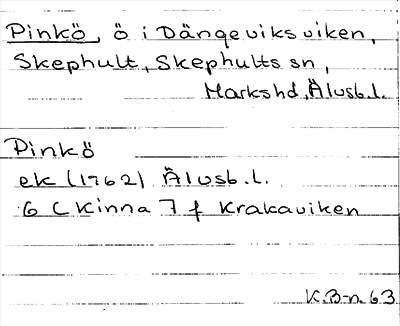 Pinkö, ö i Dängeviksviken,
Skephult, Skephults sn,
Markshd, Älvsb.l.
Pinkö
ek (1762) Älvsb.l.
6 C Kinna 7 f Krakaviken
K.B-n 63